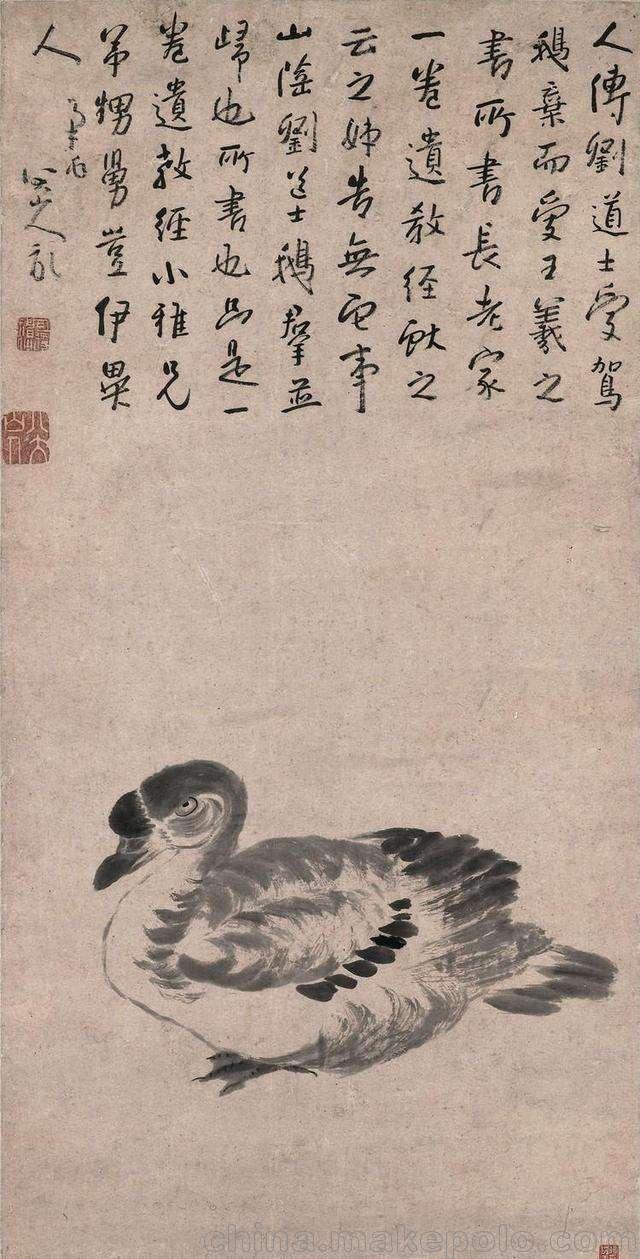 人傳劉道士愛駕
鵝棄而愛王羲之
書所書長老家
一卷遺教經獻之
云之姊告無它事
山陰劉道士鵝羣並
歸也所書也只是一
卷遺教經小雅兄
弟甥舅豈伊異
人
八大山人記
china.makepolo.com